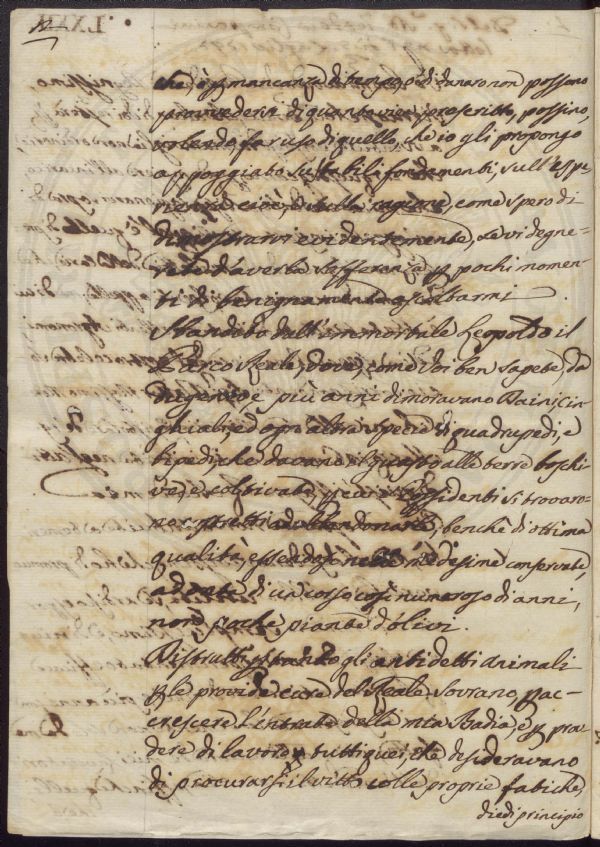 che o per mancanza di tempo, o di danaro non possono
provvedersi di quanto vien prescritto, possino,
volendo far uso di quello, che io gli propongo
appoggiato su stabili fondamenti, sull'espe-
rienza cioè, e sulla ragione, come spero di
dimostrarvi evidentemente, se vi degne-
rete d'averla sofferenza per pochi momen-
ti di benignamente ascoltarmi.
Sbandito dall'immortale Leopoldo il
Parco Reale, dove, come Voi ben sapete, da
dugento e più anni dimoravano Daini, cin-
ghiali, ed ogni altra specie di quadrupedi, e
bipedi, che davano il guasto alle terre boschi-
ve, e coltivate, per cui i Possidenti si trovaro-
no costretti ad abbandonarle, benchè d'ottima
qualità, essendosi nelle medesime conservate,
ad onta di un corso così numeroso di anni,
non poche piante d'olivi.
Distrutti pertanto gli anti detti animali
per le provide cure del Reale Sovrano, p ac-
crescere l'entrate della mia Badia, e per prov-
dere di lavoro tutti quei, che desideravano
di procurarsi il vitto colle proprie fatiche,
diedi principio